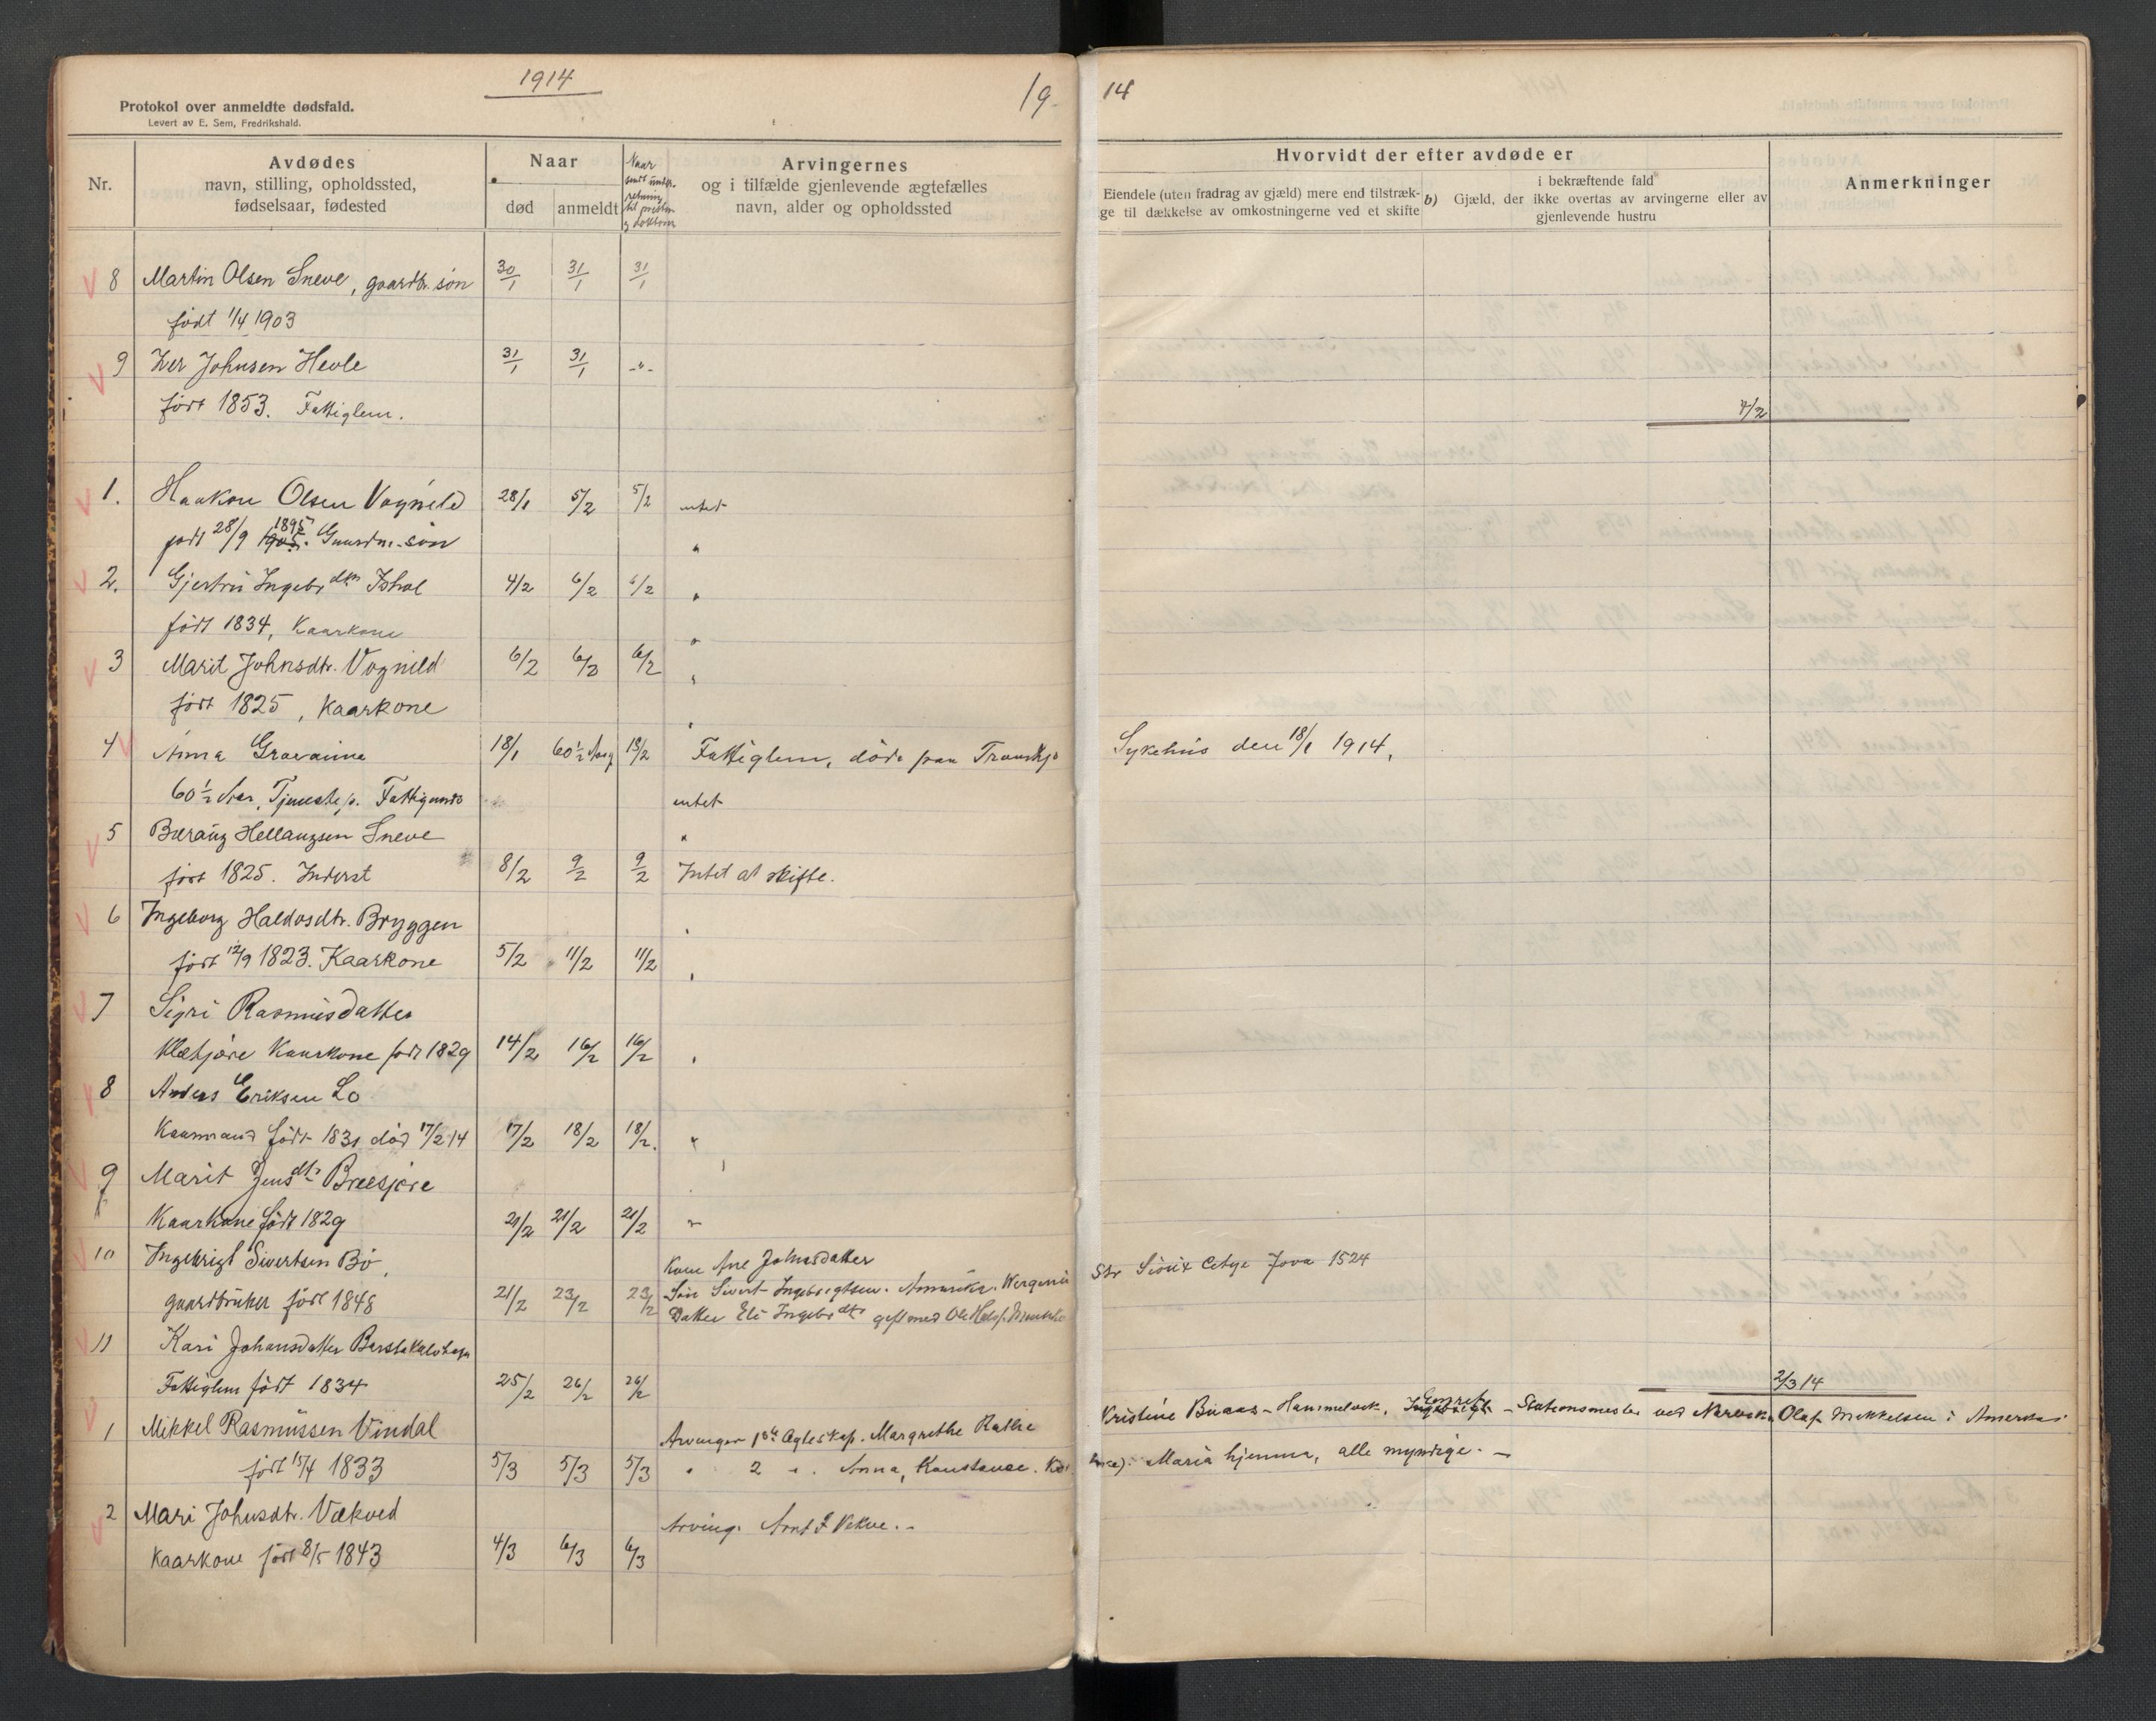 1914
19
14
Protokol over anmeldte dødsfald.
Levert av E. Sem, Fredrikshald.
Nr.
Avdødes
navn, stilling, opholdssted,
fødselsaar, fødested
Naar
død
anmeldt
Naar
sendt undr.
retning
til presten
og doktoren
Arvingernes
og i tilfælde gjenlevende ægtefælles
navn, alder og opholdssted
Hvorvidt der efter avdøde er
Eiendele (uten fradrag av gjæld) mere end tilstræk-
ge til dækkelse av omkostningerne ved et skifte
b) Gjæld, der
i bekræftende fald
ikke overtas av arvingerne eller av
gjenlevende hustru
Anmerkninger
8 Martin Olsen Sneve, gaardbr. søn 30/1 31/1 31/1
født 1/4 1903
9 Iver Johnsen Hevle 31/1 31/1 -"-
født 1853. Fattiglem.
4/2
1. Haakon Olsen Vognild 28/1 5/2 5/2 intet
født 28/9 1895 1905. Gaardm. søn "
2. Gjertru Ingebr dtr Ishol 4/2 6/2 6/2 "
født 1834, Kaarkone "
3 Marit Johnsdtr. Vognild 6/2 6/2 6/2 "
født 1825, Kaarkone "
4 Anna Gravaune 18/1 18/2 Fattiglem, døde paa Trondhj. Sykehus den 18/1 1914.
60 1/2 Aar, Tjeneste p. Fattigunds intet
5 Hellaugsen Sneve "
født 1825. Inderst 8/2 9/2 9/2 Intet at skifte.
6 Ingeborg Haldosdtr. Bryggen "
født 12/9 1823. Kaarkone 5/2 11/2 11/2 "
7 Sigri Rasmusdatter
Kaarkone født 1829 14/2 16/2 16/2 "
8 Anders Eriksen Lo
Kaarmand født 1831 død 17/2 14 17/2 18/2 18/2. "
9 Marit Jens dtr
Kaarkone født 1829 21/2 21/2 21/2 "
10 Ingebrigt Sivertsen Bø, Kone Ane Johnsdatter
gaardbruker født 1848 21/2 23/2 23/2 Søn Sivert Ingebrigtsen. Amerika. Str Sioux Citye Jova 1524
Datter Eli Ingebr dtr gift med Ole
11 Kari Johansdatter
Fattiglem født 1834 25/2 26/2 26/2
2/3 14
1 Mikkel Rasmussen Vindal Arvinger 1ste Ægteskap. Margrethe Rathe Kristine Buaas - Hammelvik, Ingebrigt - Stationsmester ved Narvik Olaf Mikkelsen i Amerka
født 15/4 1833 5/3 5/3 5/3 " 2 " . Anna, Konstanse. Maria hjemma, alle myndige. -
2 Mari Johnsdtr. Vækved Arving. Arnt J Vekve. -
Kaarkone født 8/5 1843 4/3 6/3 6/3